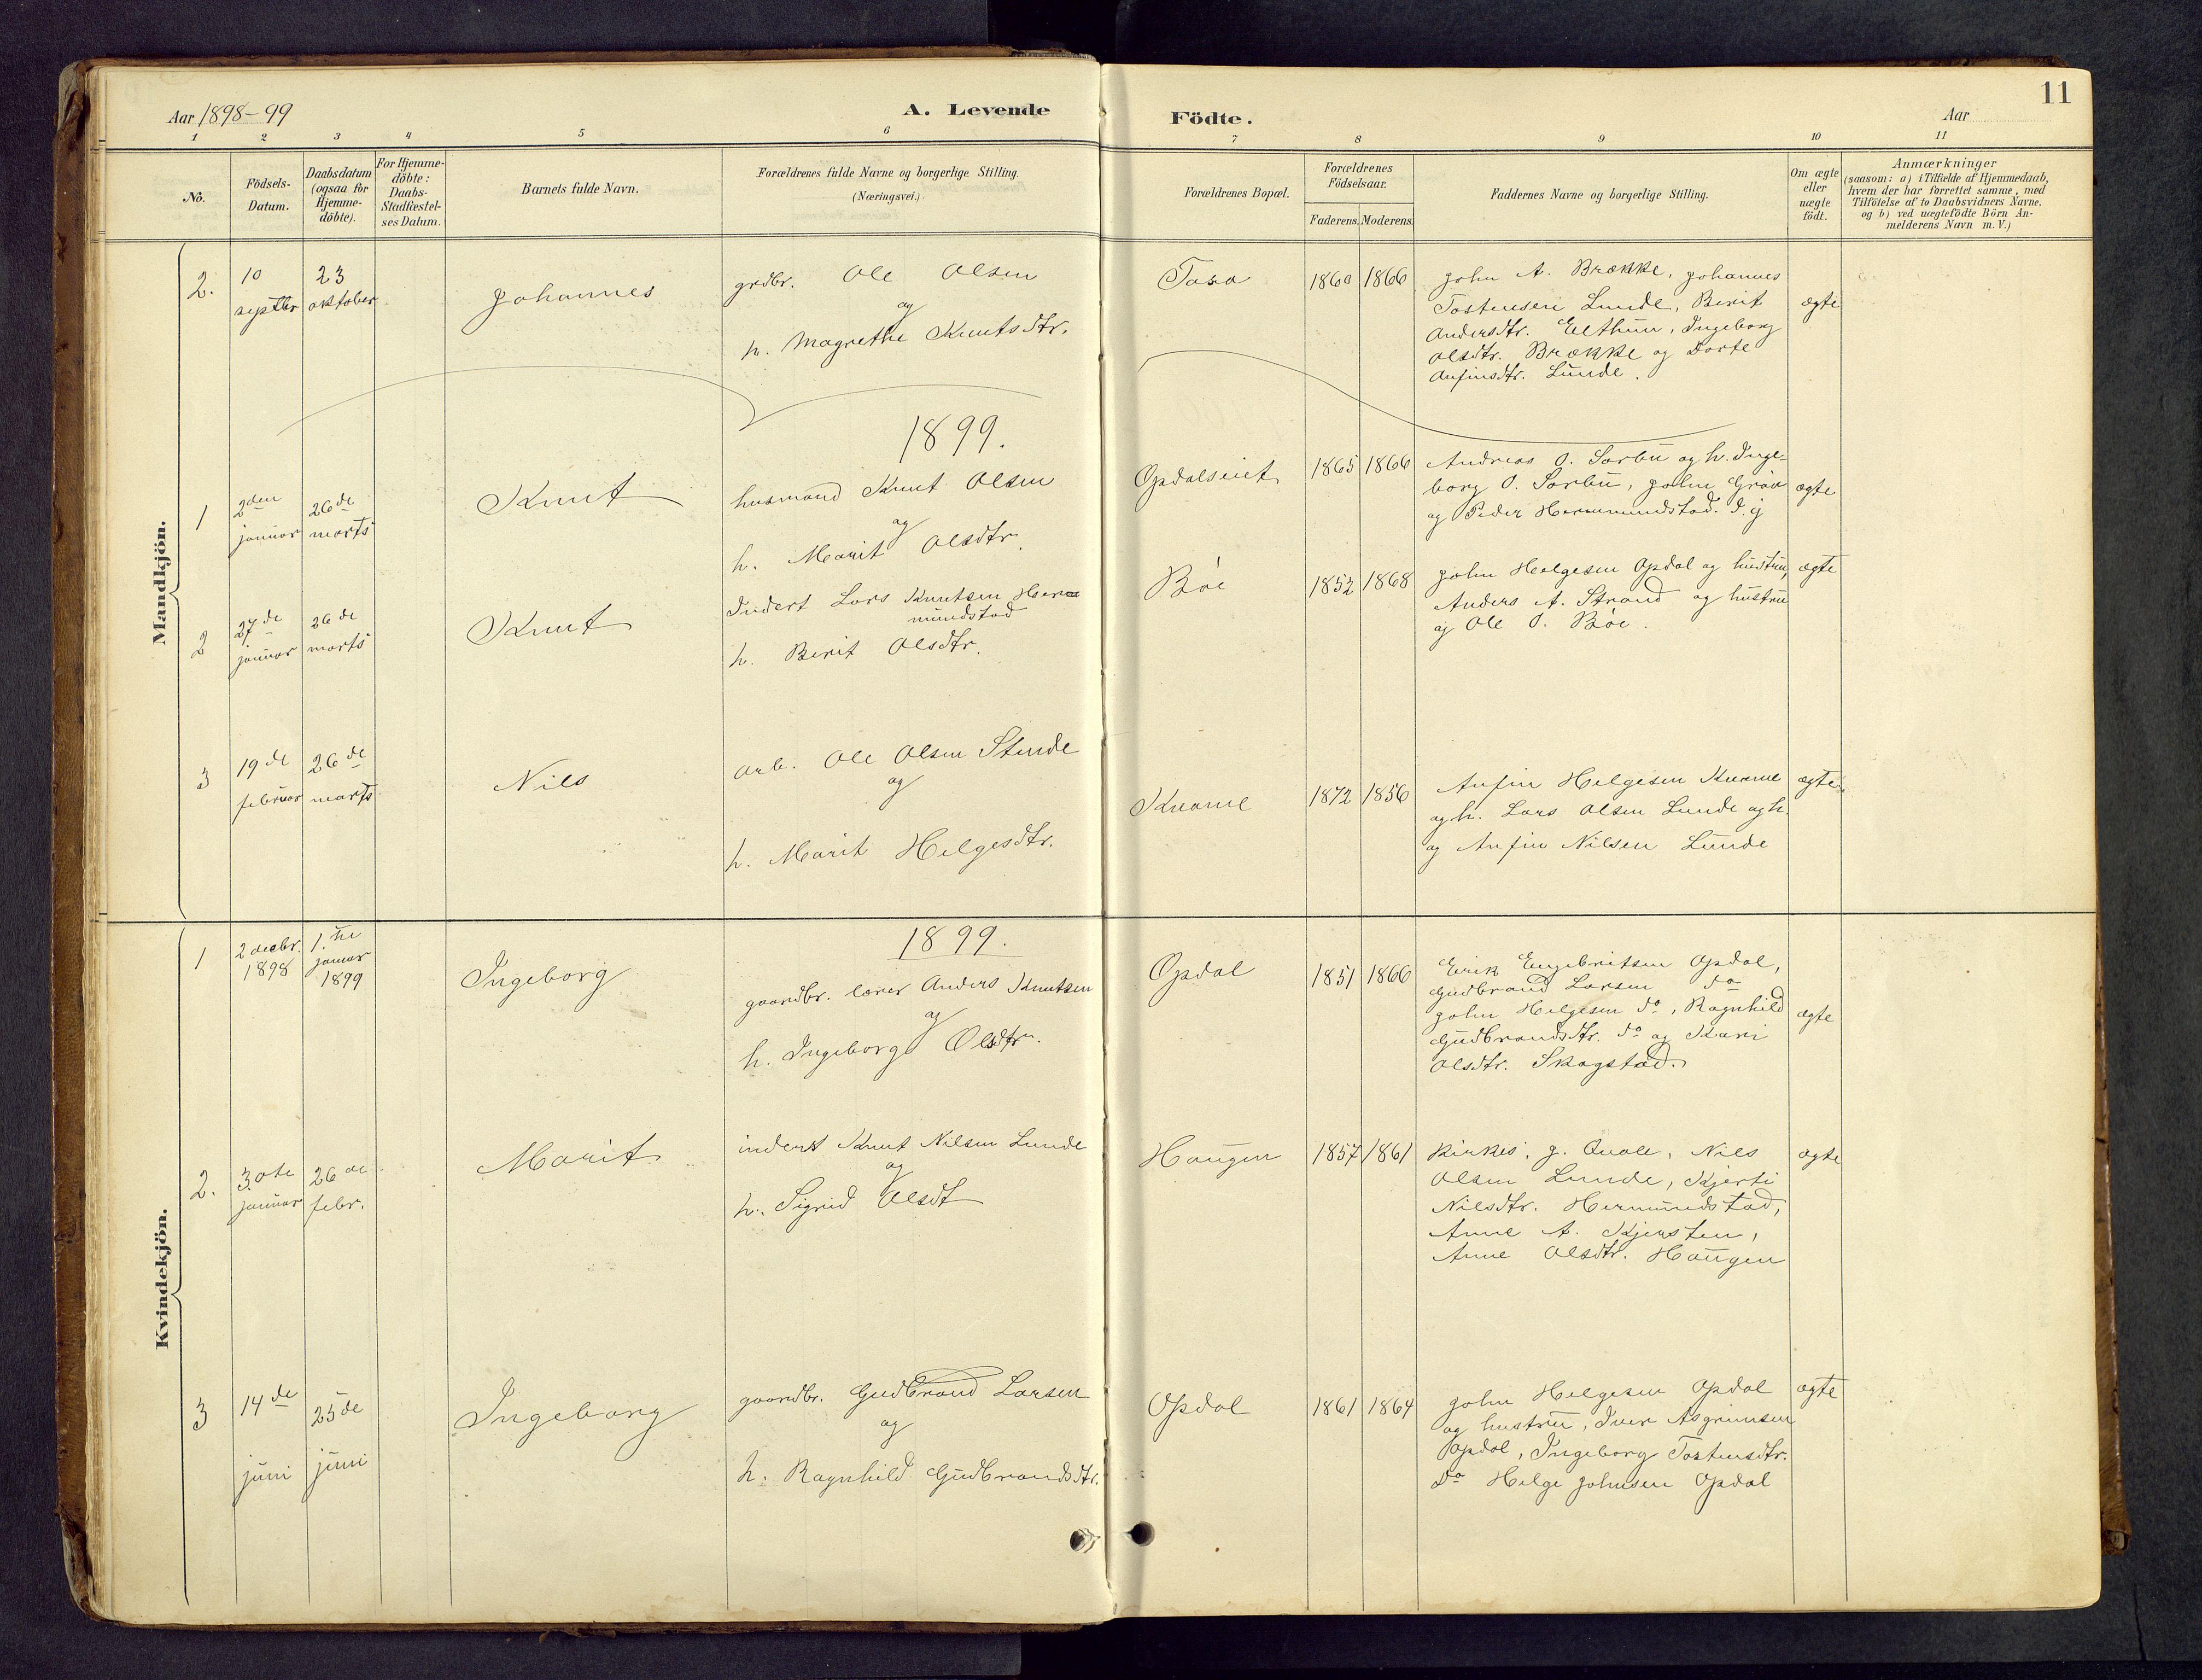 11
Aar 1898-99
A. Levende
Födte.
Aar
1 2 3 4 5 6 7 8 9 10 11
No.
Födsels-
Datum.
Daabsdatum
(ogsaa for
Hjemme-
döbte).
For Hjemme-
döbte:
Daabs-
Stadfæstel-
ses Datum.
Barnets fulde Navn.
Forældrenes fulde Navne og borgerlige Stilling.
(Næringsvei.)
Forældrenes Bopæl.
Forældrenes
Födselsaar.
Faderens. Moderens.
Faddernes Navne og borgerlige Stilling.
Om ægte
eller
uægte
födt.
Anmærkninger
(saasom: a) i Tilfælde af Hjemmedaab,
hvem der har forrettet samme, med
Tilföielse af to Daabsvidners Navne,
og b) ved uægtefödte Börn An-
melderens Navn m. V.)
Mandkjön.
2.
10
septbr
23
oktober
Johannes
grdbr. Ole Olsen
og
h. Magrethe Knutsdtr.
1860 1866
John A. Brække, Johannes
Tostensen Lunde, Berit
Andersdtr. Elthun, Ingeborg
Olsdtr. Brække og Dorte
Anfinsdtr. Lunde.
ægte
1899.
1
2den
januar
26de
marts
Knut
husmand Knut Olsen
og
h. Marit Olsdtr.
Opdalseiet
1865 1866
Andreas O. Sørbu og h. Inge-
borg O. Sørbu, John Grøv
og Peder Hermundstad.
ægte
2
27de
januar
26de
marts
Knut
Inderst Lars Knutsen Her-
mundstad
h. Berit Olsdtr.
Bøe
1852 1868
John Helgesen Opdal og hustru,
Anders A. Strand og hustru
og Ole O. Bøe.
ægte
3
19de
februar
26de
marts
Nils
arb. Ole Olsen Stende
og
h. Marit Helgesdtr.
Kvame
1872 1856
Anfin Helgesen Kvame
og h. Lars Olsen Lunde og h.
og Anfin Nilsen Lunde
ægte
Kvindekjön.
1899.
1
2 decbr.
1898
1.ste
januar
1899
Ingeborg
gaardbr. lærer Anders Knutsen
og
h. Ingeborg Olsdtr.
Opdal
1851 1866
Eirik Engebritsen Opdal,
Gudbrand Larsen do
John Helgesen do, Ragnhild
Gudbrandsdtr. do og Kari
Olsdtr. Skogstad.
ægte
2.
3.dte
januar
26de
febr.
Marit
inderst Knut Nilsen Lunde
og
h. Sigrid Olsdt
Haugen
1857 1861
Kirkes. J. Qvale, Nils
Olsen Lunde, Kjersti
Nilsdtr. Hermundstad,
Anne A. Kjersten,
Anne Olsdtr. Haugen
ægte
3
14de
juni
25de
juni
Ingeborg
gaardbr. Gudbrand Larsen
og
h. Ragnhild Gudbrandsdtr.
Opdal
1861 1864
John Helgesen Opdal
og hustru, Iver Asgrimsen
Opdal, Ingeborg Tostensdtr.
do Helge Johnsen Opdal
ægte